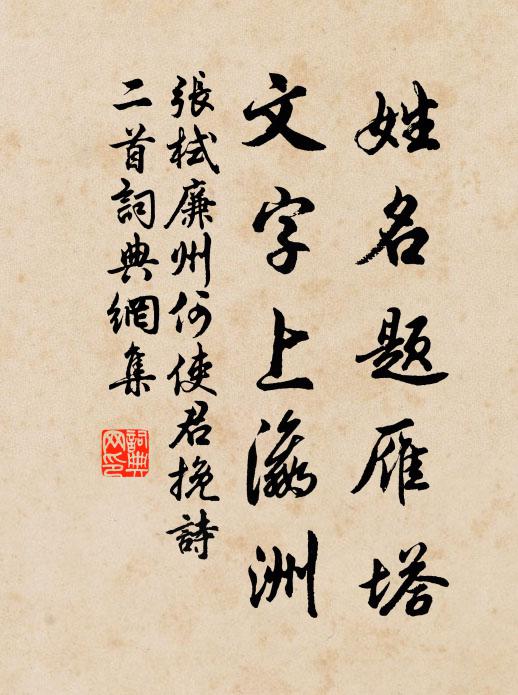 姓名题雁塔
文字上瀛洲
張栻廉州何使君挽詩
二首詞典網集
詞典网印